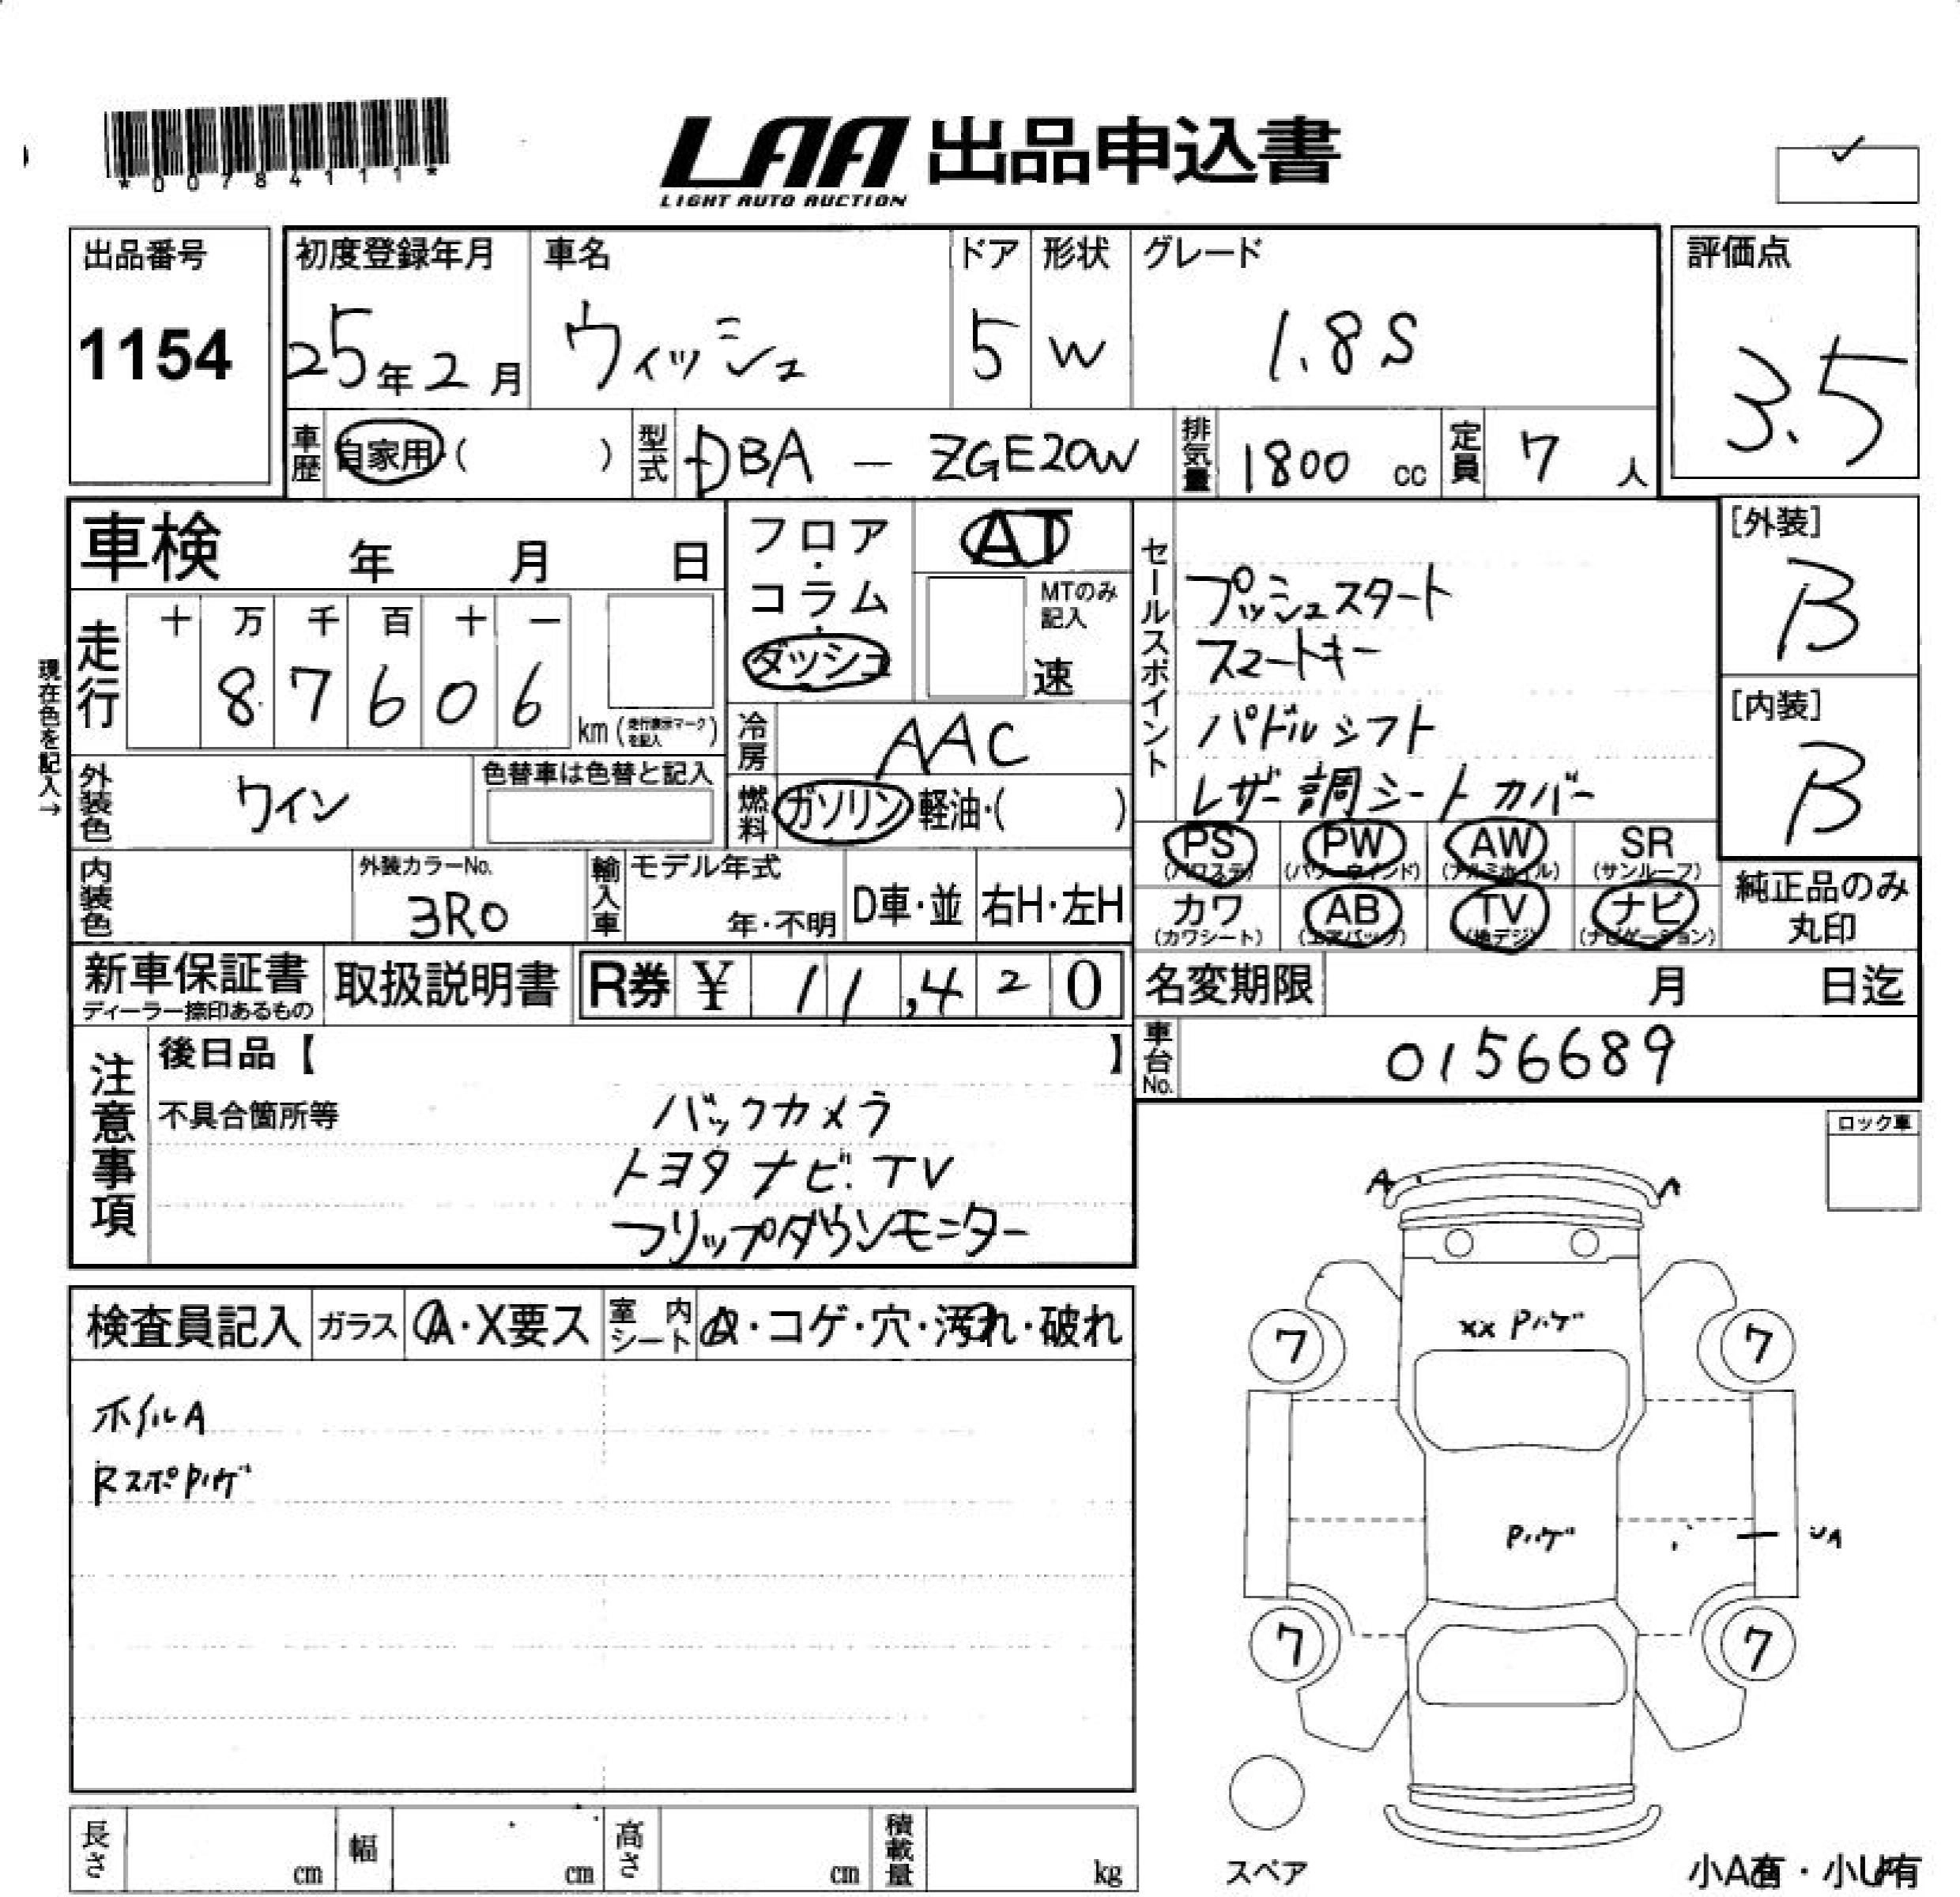 *00784111*
LAA 出品申込書
LIGHT AUTO AUCTION
出品番号
1154
初度登録年月
25年2月
車名
ウィッシュ
ドア
5
形状
W
グレード
1.8S
評価点
3.5
車歴
自家用・( )
型式
DBA - ZGE20W
排気量
1800 cc
定員
7 人
車検 年 月 日
走行
十 万 千 百 十 一
8 7 6 0 6
km (走行表示マークを記入)
現在色を記入→
外装色
ワイン
色替車は色替と記入
内装色
外装カラーNo.
3R0
輸入車
モデル年式
年・不明
D車・並
右H・左H
フロア・コラム・ダッシュ
AT
MTのみ記入
速
冷房
AAC
燃料
ガソリン・軽油・( )
セールスポイント
プッシュスタート
スマートキー
パドルシフト
レザー調シートカバー
PS
(パワステ)
PW
(パワーウィンド)
AW
(アルミホイル)
SR
(サンルーフ)
カワ
(カワシート)
AB
(エアバック)
TV
(地デジ)
ナビ
(ナビゲーション)
[外装]
B
[内装]
B
純正品のみ
丸印
新車保証書
ディーラー捺印あるもの
取扱説明書
R券 ¥ 11,420
名変期限 月 日迄
車台No.
0156689
注意事項
後日品【 】
不具合箇所等
バックカメラ
トヨタナビ.TV
フリップダウンモニター
ロック車
検査員記入
ガラス
A・X要ス
室内シート
・コゲ・穴・汚れ・破れ
ホイルA
RスポPハゲ
A
A
XX Pハゲ
7
7
Pハゲ
UA
7
7
スペア
小A有・小U有
長さ cm
幅 cm
高さ cm
積載量 kg